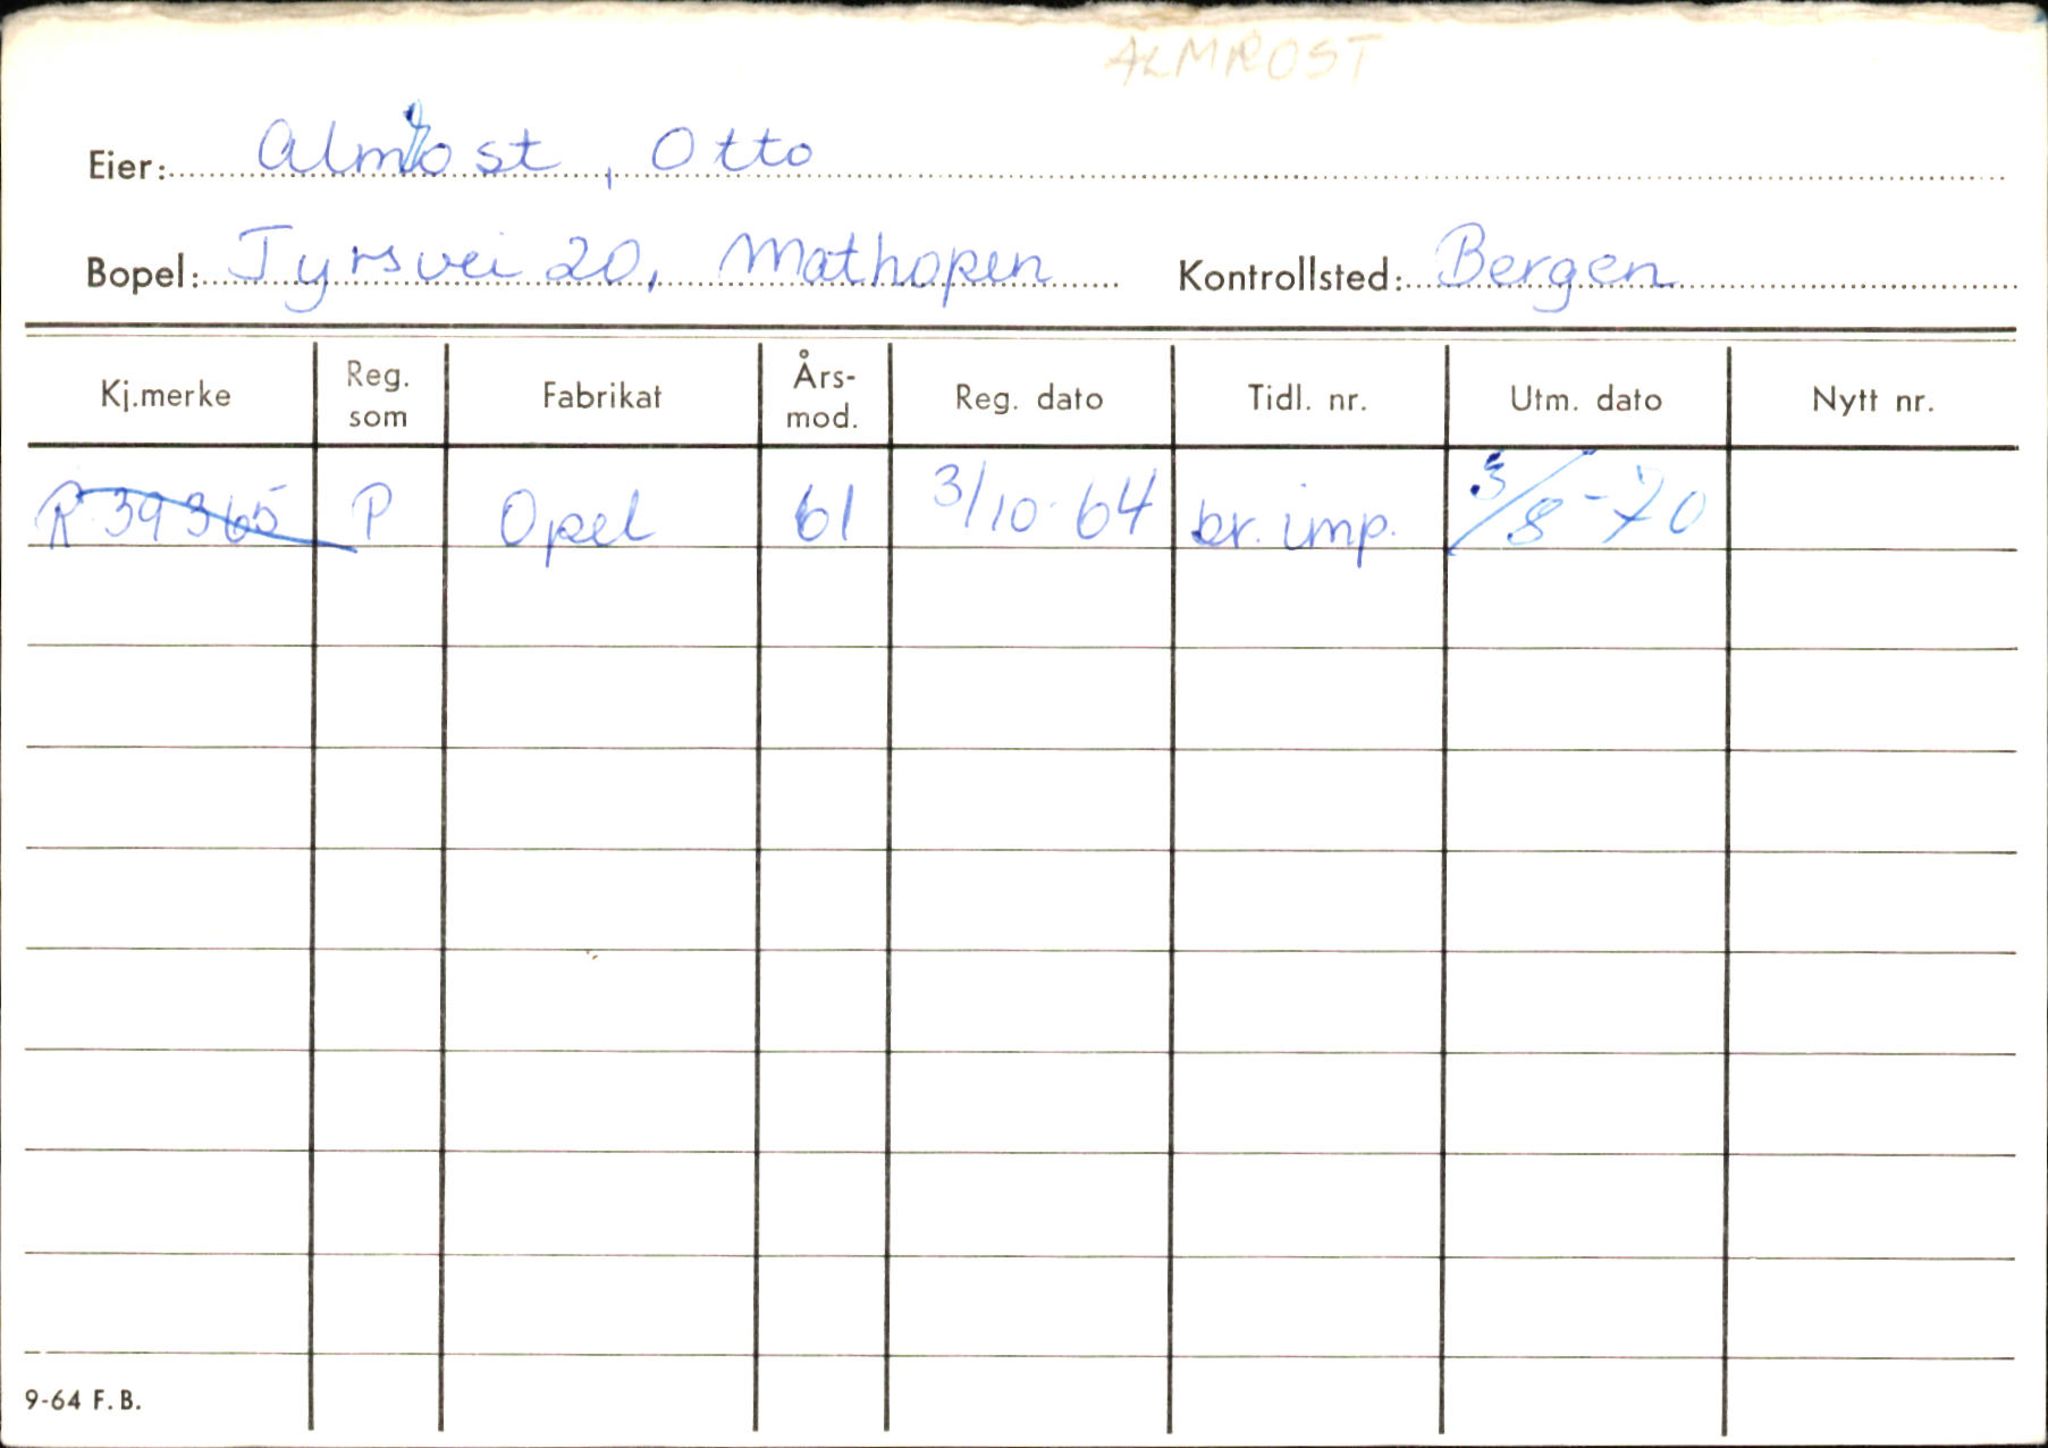 ALMROST
Eier: Almrost, Otto
Bopel: Tyrsvei 20, Mathopen Kontrollsted: Bergen
Kj.merke Reg. som Fabrikat Års-mod. Reg. dato Tidl. nr. Utm. dato Nytt nr.
R 39365 P Opel 61 3/10-64 br. imp. 3/8-70
9-64 F.B.